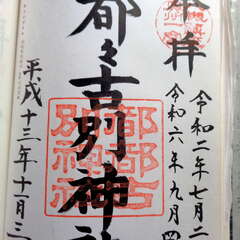 奉拝
令和二年七月二
令和六年九月
都々古別神社
都都古
別神社
平成十三年十一月三